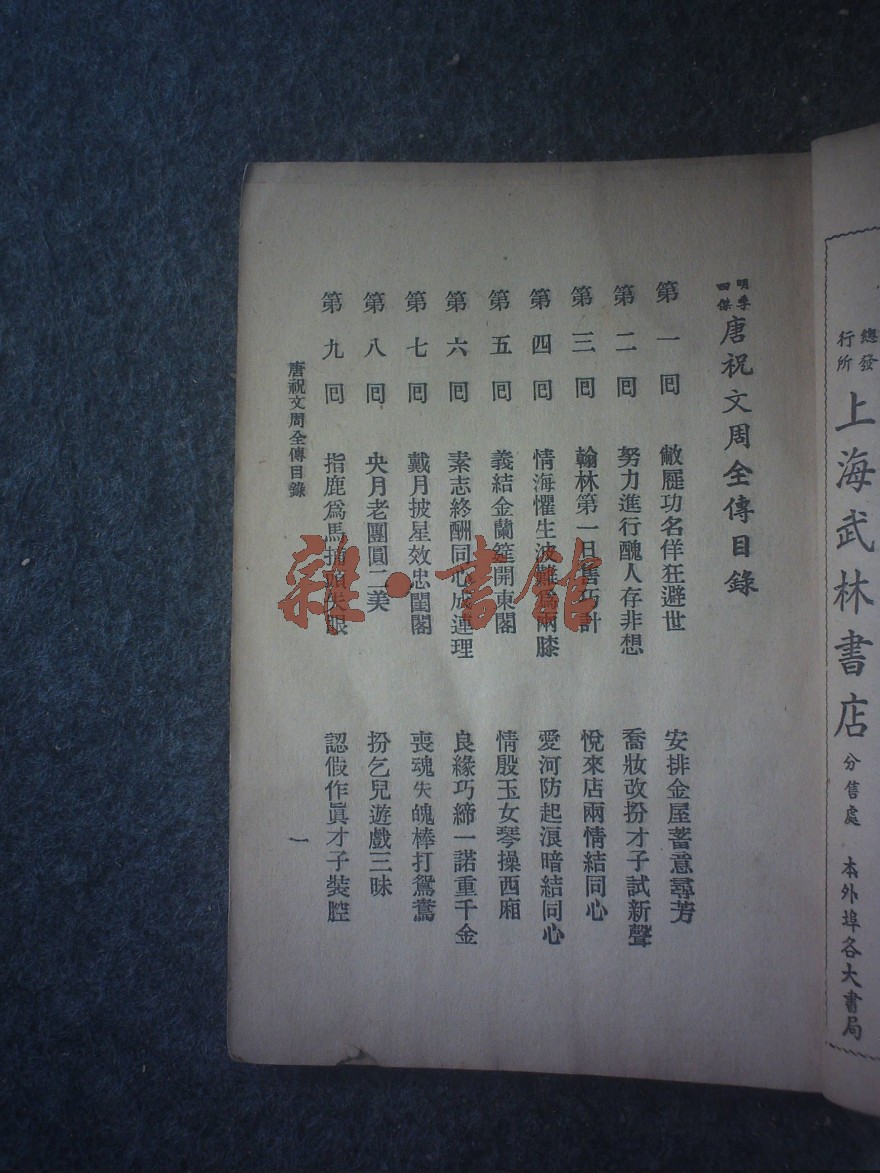 總發行所
上海武林書店
分售處 本外埠各大書局
明季四傑 唐祝文周全傳目錄
第一囘 敝屣功名佯狂避世 安排金屋蓄意尋芳
第二囘 努力進行醜人存非想 喬妝改扮才子試新聲
第三囘 翰林第一日售巧計 悅來店兩情結同心
第四囘 情海懼生波難為兩膝 愛河防起浪暗結同心
第五囘 義結金蘭筵開東閣 情殷玉女琴操西廂
第六囘 素志終酬同心成連理 良緣巧締一諾重千金
第七囘 戴月披星效忠閨閣 喪魂失魄棒打鴛鴦
第八囘 央月老團圓二美 扮乞兒遊戲三昧
第九囘 指鹿爲馬捕頭失眼 認假作眞才子裝腔
唐祝文周全傳目錄
一
雜·書館